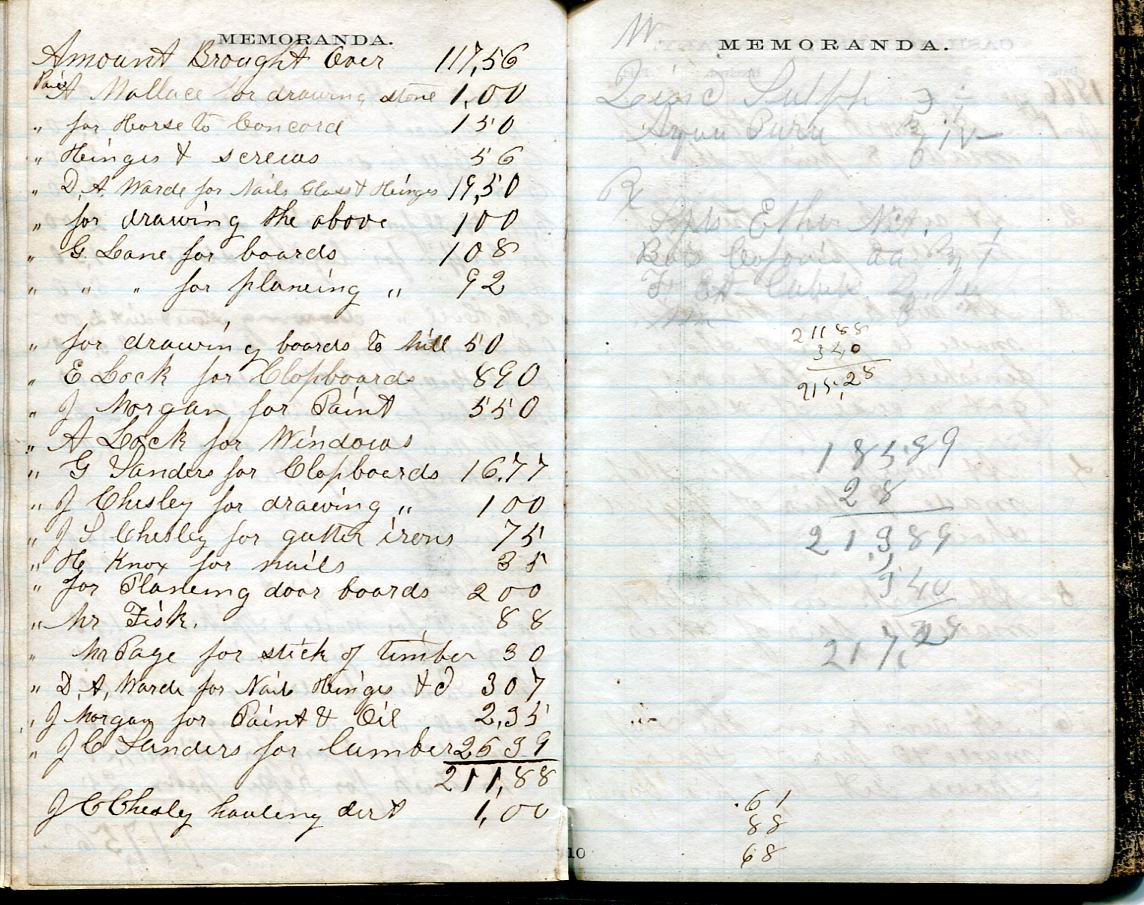 MEMORANDA.
Amount Brought Over 117,56
Paid A Mallace for drawing stone 1,00
" for Horse to Concord 150
" Hinges & screws 56
" D. A. Warde for Nails Glass & Hinges 19,50
" for drawing the above 100
" G Lane for boards 108
" " " for planeing " 92
" for drawing boards to hill 50
" E Lock for Clopboards 890
" J Morgan for Paint 550
" A Lock for Windows
" G Sanders for Clopboards 16,77
" J Chesley for drawing " 100
" J S Chesley for gutter irons 75
" H Knox for nails 35
" for Planeing door boards 200
" Mr Fisk. 88
" Mr Page for stick of timber 30
" D, A, Warde for Nails Hinges & 307
" J Morgan for Paint & Oil 2,35
" J C Sanders for lumber 2539
211,88
J C Chesley hauling dirt 1,00
MEMORANDA.
21188
340
215,28
185,99
28
219 89
340
217,29
.61
88
68
10